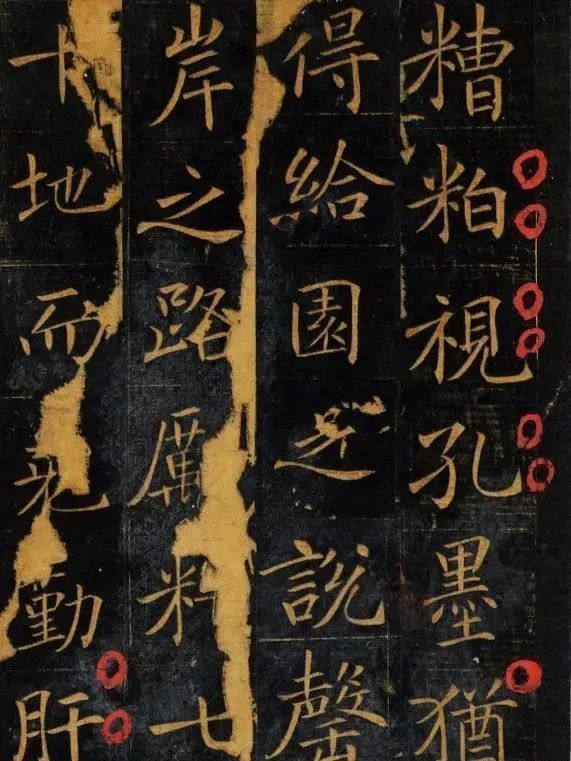 糟粕視孔墨猶
得給園之說罄
岸之路厲料七
十地而克勤肝